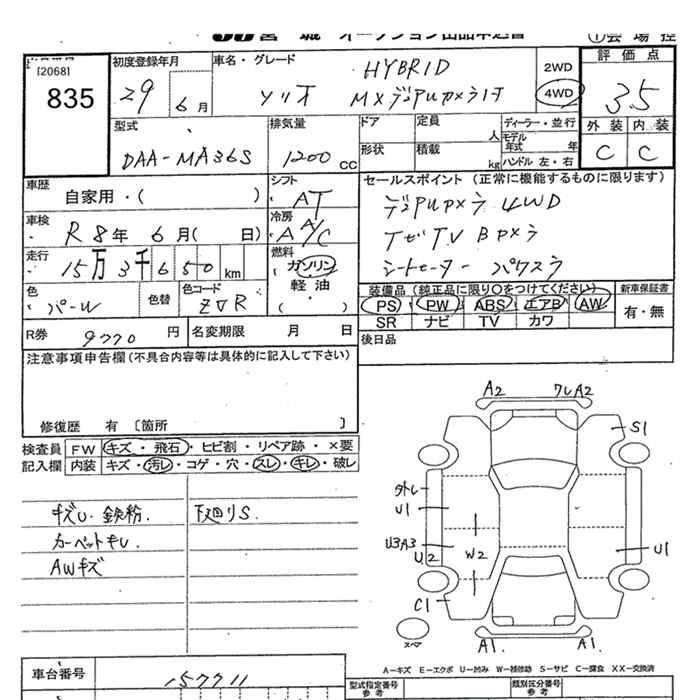 宮城 オークション出品申込書 ①会場控
[2068]
835
初度登録年月
29 6月
車名・グレード
HYBRID
ソリオ MXデュアルカメラ付
2WD
4WD
評価点
3.5
外装 内装
C C
型式
DAA-MA36S
排気量
1200cc
ドア 定員 人
形状 積載 kg
ディーラー・並行
モデル年式 年
ハンドル 左・右
車歴
自家用・( )
シフト
AT
車検
R8年 6月( 日)
冷房
A A/C
走行
15万3千650km
燃料
ガソリン
軽油
・
( )
色
パール
色替
色コード
ZVR
R券 9770円
名変期限 月 日
セールスポイント (正常に機能するものに限ります)
デュアルカメラ 4WD
ナビTV Bカメラ
シートヒーター パワスラ
装備品 (純正品に限り〇をつけてください)
PS PW ABS エアB AW
SR ナビ TV カワ
新車保証書
有・無
後日品
注意事項申告欄(不具合内容等は具体的に記入して下さい)
修復歴 有 〔箇所 〕
検査員記入欄
FW キズ・飛石・ヒビ割・リペア跡・×要
内装 キズ・汚レ・コゲ・穴・スレ・キレ・破レ
キズU. 鉄粉. 下廻りS.
カーペットキレ
AWキズ
A2 ワレA2
S1
外レ
U1
U3A3
U2 W2 U1
C1
スペア
A1. A1.
A-キズ E-エクボ U-凹み W-補修跡 S-サビ C-腐食 XX-交換済
車台番号
157711
型式指定番号
参考
類別区分番号
参考